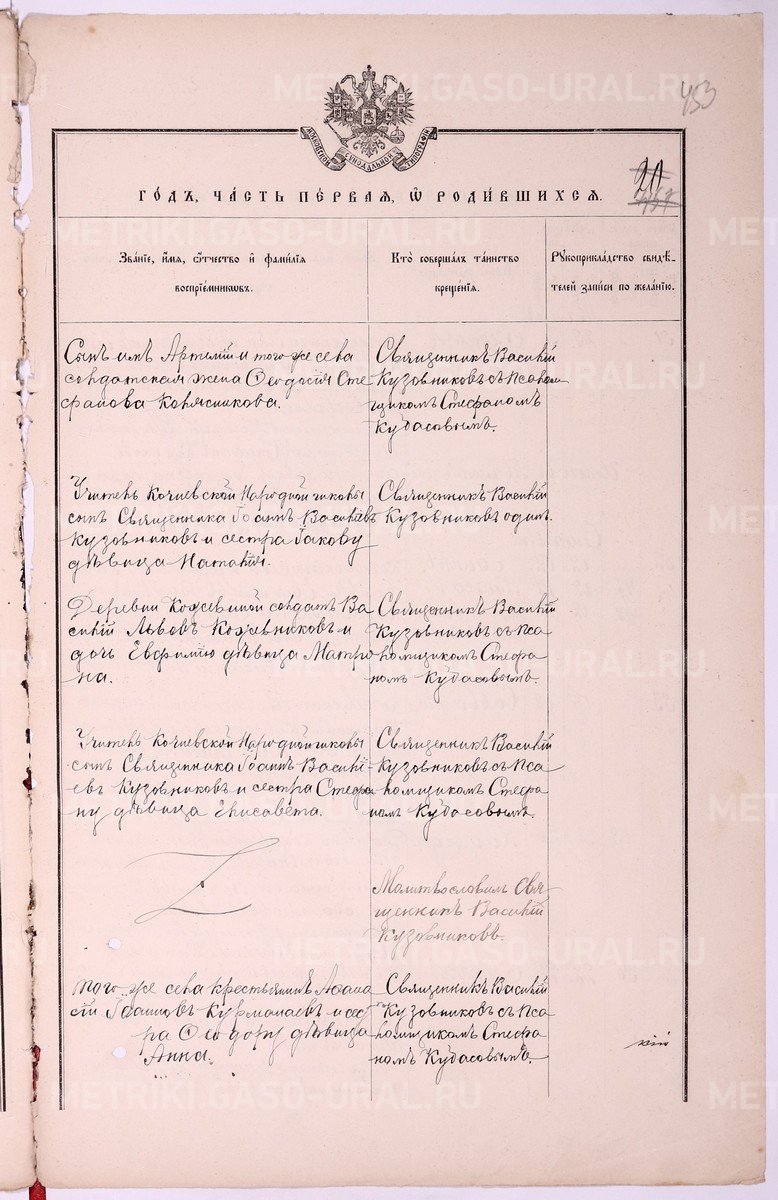 METRIKI.GASO-URAL.RU
453
МОСКОВСКОЙ СѴНОДАЛЬНОЙ ТИПОГРАФІИ
20
ГОДЪ, ЧАСТЬ ПЕРВАЯ, Ѡ РОДИВШИХСЯ.
Званіе, имя, ѻтчество и фамилія
воспріемниковъ.
Кто совершалъ таинство
крещенія.
Рукоприкладство свидѣ-
телей записи по желанію.
Сынъ имъ Артемій и того же села
солдатская жена Ѳеодосія Сте
фанова Колясникова.
Священникъ Василій
Кузовниковъ съ псалом
щикомъ Стефаномъ
Кудасовымъ.
Учитель Кочневской Народной школы
сынъ Священника Іоаннъ Васильевъ
Кузовниковъ и сестра Іакову
дѣвица Наталія.
Священникъ Василій
Кузовниковъ одинъ.
Деревни Кожевиной солдатъ Ва
силій Львовъ Кожевниковъ и
дочь Евфимію дѣвица Матро
на.
Священникъ Василій
Кузовниковъ съ Пса
ломщикомъ Стефа
номъ Кудасовымъ.
Учитель Кочневской Народной школы
сынъ Священника Іоаннъ Василі-
евъ Кузовниковъ и сестра Стефа
ну дѣвица Елисавета.
Священникъ Василій
Кузовниковъ съ Пса
ломщикомъ Стефа
номъ Кудасовымъ.
Молитвословилъ Свя
щенникъ Василій
Кузовниковъ.
того же села крестьянинъ Афана
сій Іоанновъ Курманаевъ и сес
ра Ѳеодору дѣвица
Анна.
Священникъ Василій
Кузовниковъ съ Пса
ломщикомъ Стефа
номъ Кудасовымъ.
METRIKI.GASO-URAL.RU